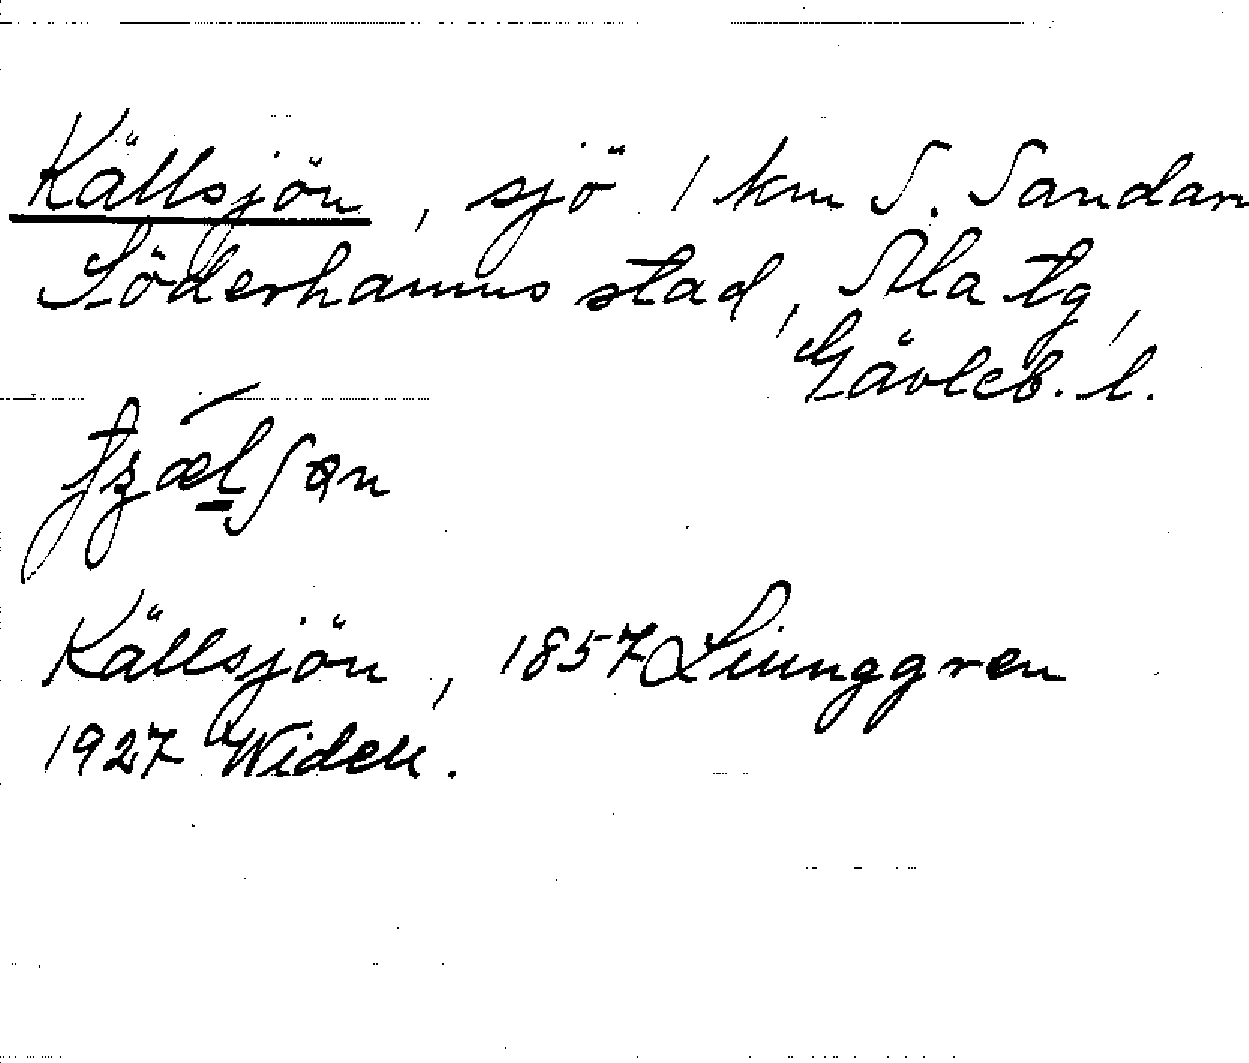 Källsjön, sjö 1 km S. Sandarn
Söderhamns stad, Ala tg,
Gävleb. l.
Källsjön, 1857 Ljunggren
1927 Widell.